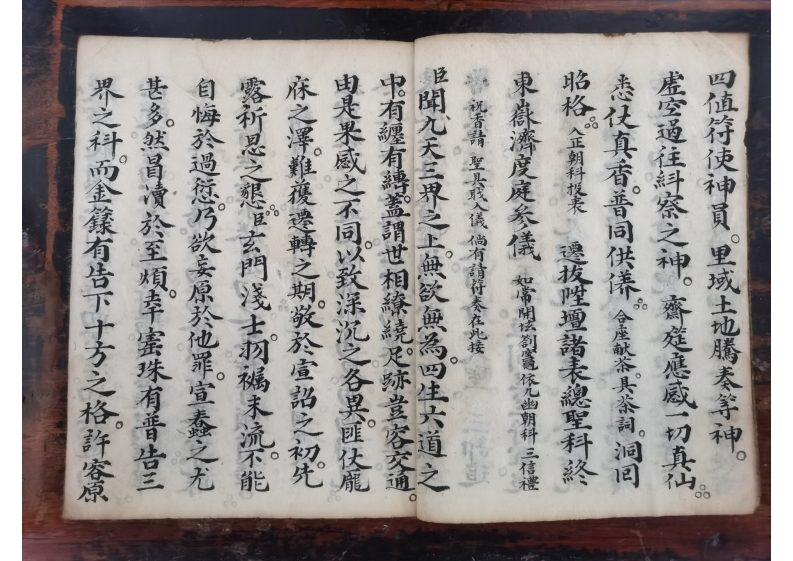 四值符使神員。里域土地騰奏等神。
虛空過往糾察之神。齋筵應感一切真仙。
悉仗真香。普同供養。合座献茶具茶詞。洞回
昭格。入正朝科投表 遷拔陞壇諸表總聖科終
東嶽濟度庭參儀 如常開坛 依九幽朝科 三信禮
祝香請 聖具職入儀 倘有請符奏在此接
臣聞九天三界之上。無欲無為。四生六道之
中。有纏有縛。蓋謂世相繚繞。足跡豈容交通。
由是果感之不同。以致深沉之各異。匪仗龐
庥之澤。難獲遷轉之期。敬於宣詔之初。先
露祈恩之懇。臣玄門淺士。羽襴末流。不能
自悔於過愆。乃欲妄原於他罪。宣蠢之尤
甚多。然冒瀆於至煩。幸寚珠有普告三
界之科。而金籙有告下十方之格。許容原